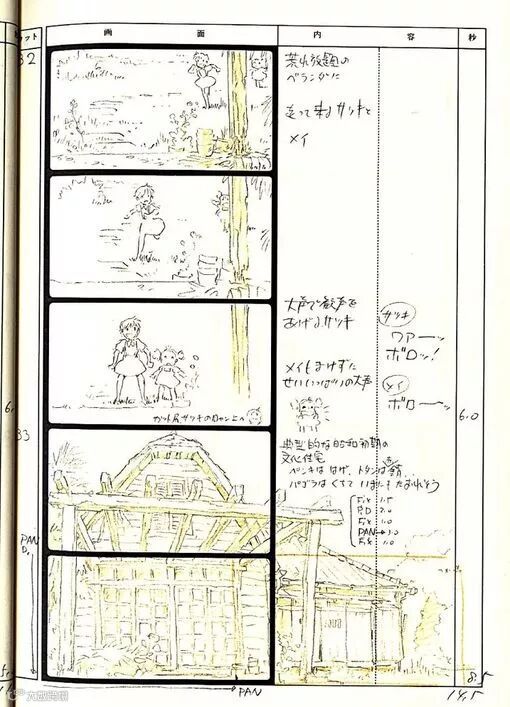 カット
画 面
内 容
秒
32
荒れ放題の
ベランダに
走って来るサツキと
メイ
大声で歓声を
あげるサツキ
サツキ
ワァーッ
ボロッ!
メイもまけずに
せいいっぱいの大声
メイ
ボローーッ
6.0
33
典型的な昭和初期の
文化住宅
ペンキははげ、トタンは錆
パゴラはくちていまにもたおれそう
Fix 1.5
P.D 2.0
Fix 1.0
Fix 1.0
PAN
D.
PAN
8.5
14.5